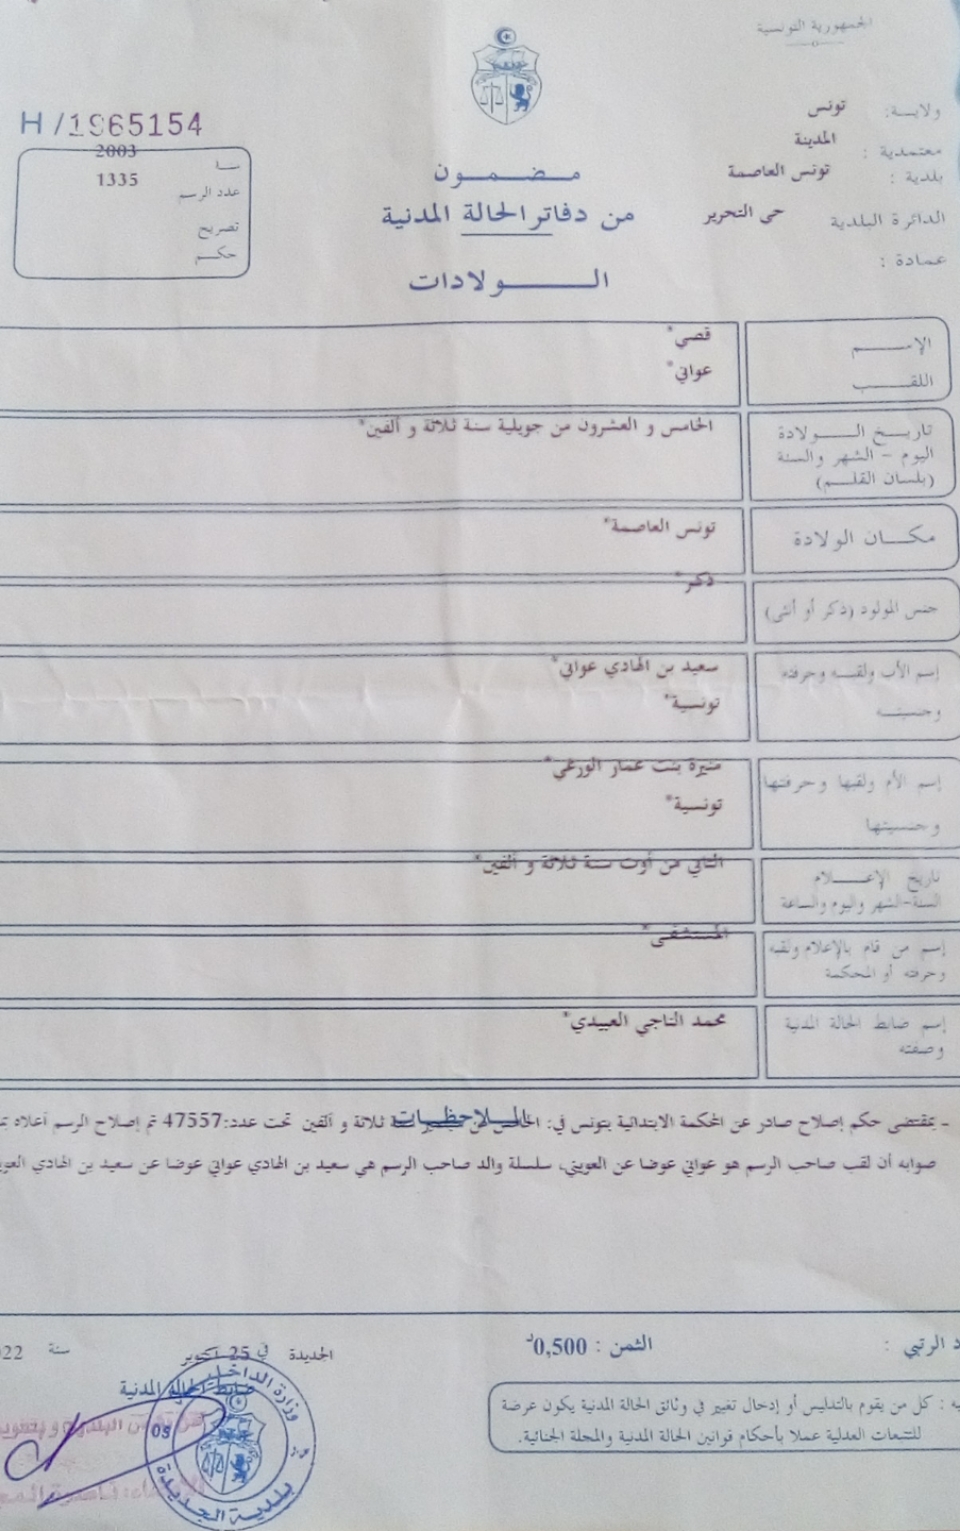 الجمهورية التونسية
ولاية: تونس
معتمدية : المدينة
بلدية : تونس العاصمة
الدائرة البلدية حي التحرير
عمادة :
H/1965154
سنة 2003
عدد الرسم 1335
تصريح
حكم
مضمون
من دفاتر الحالة المدنية
الولادات
الإسم قصي*
اللقب عواني*
تاريخ الولادة الخامس و العشرون من جويلية سنة ثلاثة و ألفين*
اليوم - الشهر والسنة
(بلسان القلم)
مكان الولادة تونس العاصمة*
جنس المولود (ذكر أو أنثى) ذكر*
إسم الأب ولقبه وحرفته سعيد بن الهادي عواني*
وجنسيته تونسية*
إسم الأم ولقبها وحرفتها منيرة بنت عمار الورغي*
وجنسيتها تونسية*
تاريخ الإعلام الثاني من أوت سنة ثلاثة و ألفين*
السنة-الشهر واليوم والساعة
إسم من قام بالإعلام ولقبه المستشفى*
وحرفته أو المحكمة
إسم ضابط الحالة المدنية محمد الناجي العبيدي*
وصفته
الملاحظات
- بمقتضى حكم إصلاح صادر عن المحكمة الابتدائية بتونس في: الخامس من سنة ثلاثة و ألفين تحت عدد:47557 تم إصلاح الرسم أعلاه
صوابه أن لقب صاحب الرسم هو عواني عوضا عن العويني، سلسلة والد صاحب الرسم هي سعيد بن الهادي عواني عوضا عن سعيد بن الهادي
الرتبي : الثمن : 0,500د
الجديدة في 25 أكتوبر سنة 22
ضابط الحالة المدنية
: كل من يقوم بالتدليس أو إدخال تغيير في وثائق الحالة المدنية يكون عرضة
للتتبعات العدلية عملا بأحكام قوانين الحالة المدنية والمجلة الجنائية.
وزارة الداخلية
05
بلدية الجديدة
عن رئيس البلدية و بتفويض
الإمضاء: